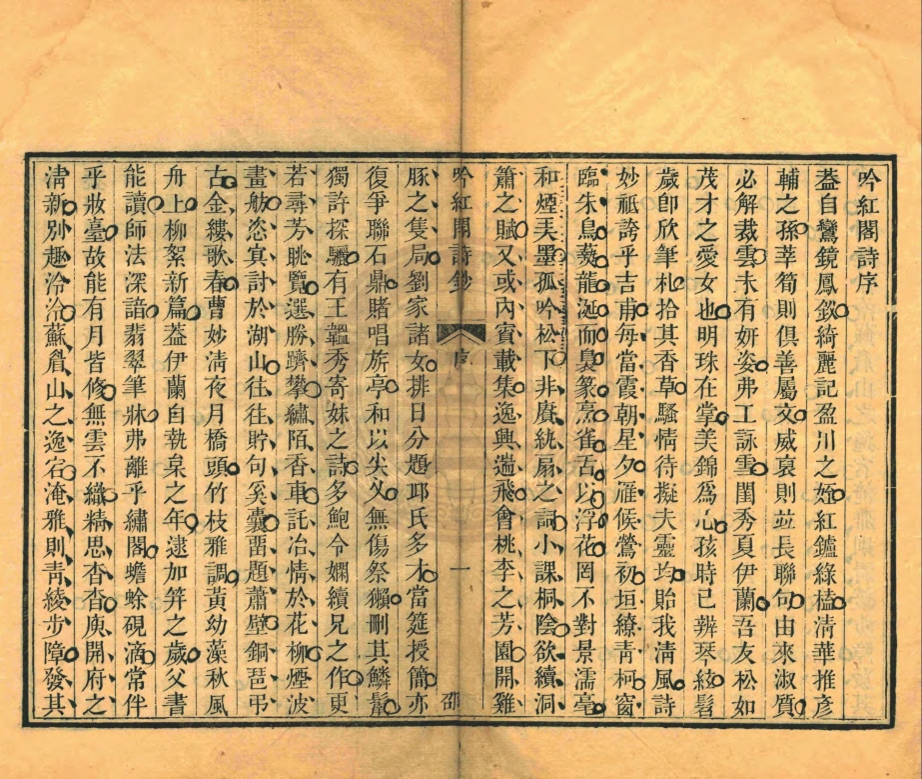 吟紅閣詩序
葢自鸞鏡鳳釵綺麗記盈川之姪紅鑪綠榼清華推彥
輔之孫莘筍則俱善屬文威裒則並長聯句由來淑質
必解裁雲未有妍姿弗工詠雪閨秀夏伊蘭吾友松如
茂才之愛女也明珠在掌美錦爲心孩時已辨琴絃髫
歲卽欣筆札拾其香草騷情待擬夫靈均貽我清風詩
妙祗誇乎吉甫每當霞朝星夕雁候鶯初垣繚靑柯窗
臨朱鳥爇龍涎而裊篆烹雀舌以浮花罔不對景濡毫
和煙美墨孤吟松下非賡紈扇之詞小課桐陰欲續洞
簫之賦又或內賓載集逸興遄飛會桃李之芳園開雞
吟紅閣詩鈔 序 一 邵
豚之隻局劉家諸女排日分題邱氏多才當筵授簡亦
復爭聯石鼎賭唱旂亭和以尖义無傷祭獺刪其鱗鬛
獨許探驪有王韞秀寄妹之詩多鮑令嫻續兄之作更
若尋芳眺覽選勝躋攀繡陌香車託冶情於花柳煙波
畫舫恣寘討於湖山往往貯句奚囊畱題蕭壁銅琶弔
古金縷歌春曹妙淸夜月橋頭竹枝雅調黃幼藻秋風
舟上柳絮新篇葢伊蘭自執枲之年逮加笄之歲父書
能讀師法深諳翡翠筆牀弗離乎繡閣蟾蜍硯滴常伴
乎妝臺故能有月皆修無雲不織精思杳杳庾開府之
清新别趣泠泠蘇眉山之逸宕淹雅則靑綾步障發其